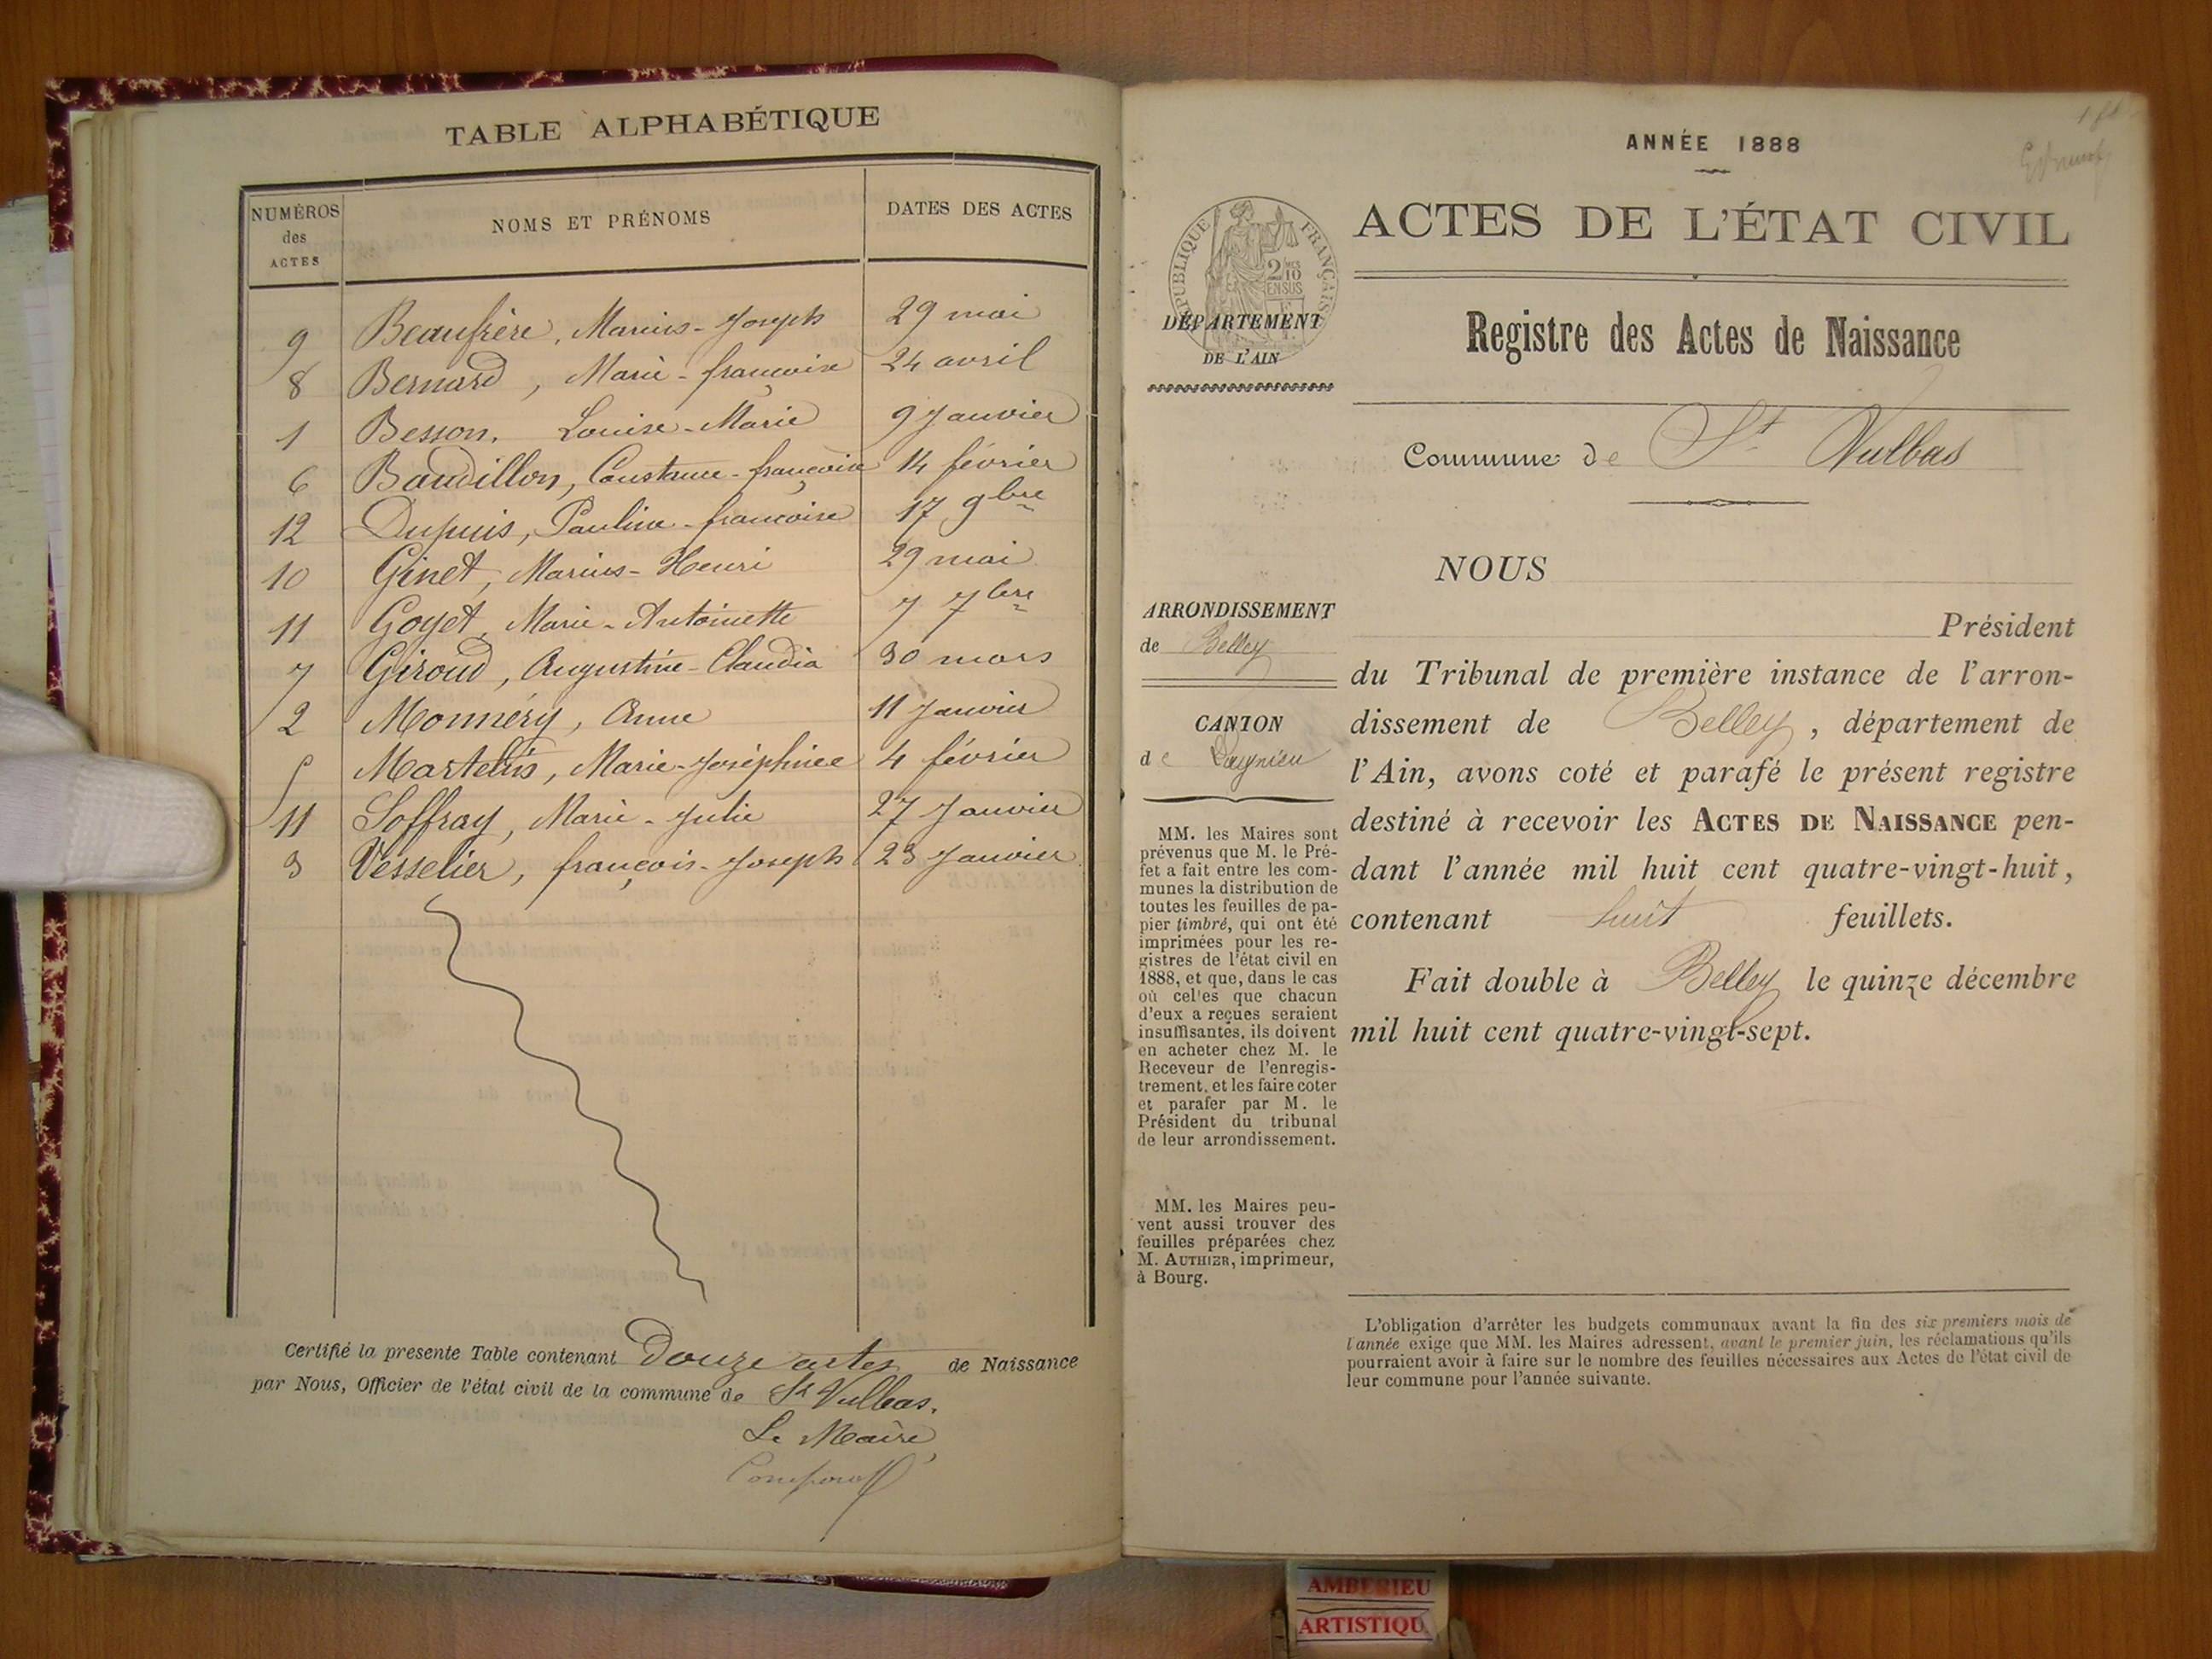 TABLE ALPHABÉTIQUE
NUMÉROS des ACTES NOMS ET PRÉNOMS DATES DES ACTES
9 Beaufrère, Marius-Joseph 29 mai
8 Bernard, Marie-françoise 24 avril
1 Besson, Louise-Marie 9 Janvier
6 Baudillon, Constance-françoise 14 février
12 Dupuis, Pauline-françoise 17 9bre
10 Ginet, Marius-Henri 29 mai
11 Goyet, Marie-Antoinette 7 7bre
7 Giroud, Augustine-Claudia 30 mars
2 Monnéry, Anne 11 Janvier
5 Martelin, Marie-Joséphine 4 février
11 Soffray, Marie-Julie 27 Janvier
3 Vesselier, françois-Joseph 23 Janvier
Certifié la presente Table contenant Douze actes de Naissance
par Nous, Officier de l'état civil de la commune de St Vulbas.
Le Maire,
ANNÉE 1888
ACTES DE L'ÉTAT CIVIL
RÉPUBLIQUE FRANÇAISE
2/10 EN SUS
DÉPARTEMENT
DE L'AIN
Registre des Actes de Naissance
Commune de St Vulbas
ARRONDISSEMENT
de Belley
CANTON
de Lagnieu
MM. les Maires sont
prévenus que M. le Pré-
fet a fait entre les com-
munes la distribution de
toutes les feuilles de pa-
pier timbré, qui ont été
imprimées pour les re-
gistres de l'état civil en
1888, et que, dans le cas
où celles que chacun
d'eux a reçues seraient
insuffisantes, ils doivent
en acheter chez M. le
Receveur de l'enregis-
trement, et les faire coter
et parafer par M. le
Président du tribunal
de leur arrondissement.
MM. les Maires peu-
vent aussi trouver des
feuilles préparées chez
M. AUTHIER, imprimeur,
à Bourg.
NOUS
Président
du Tribunal de première instance de l'arron-
dissement de Belley, département de
l'Ain, avons coté et parafé le présent registre
destiné à recevoir les ACTES DE NAISSANCE pen-
dant l'année mil huit cent quatre-vingt-huit,
contenant huit feuillets.
Fait double à Belley le quinze décembre
mil huit cent quatre-vingt-sept.
L'obligation d'arrêter les budgets communaux avant la fin des six premiers mois de
l'année exige que MM. les Maires adressent, avant le premier juin, les réclamations qu'ils
pourraient avoir à faire sur le nombre des feuilles nécessaires aux Actes de l'état civil de
leur commune pour l'année suivante.
AMBERIEU
ARTISTIQU